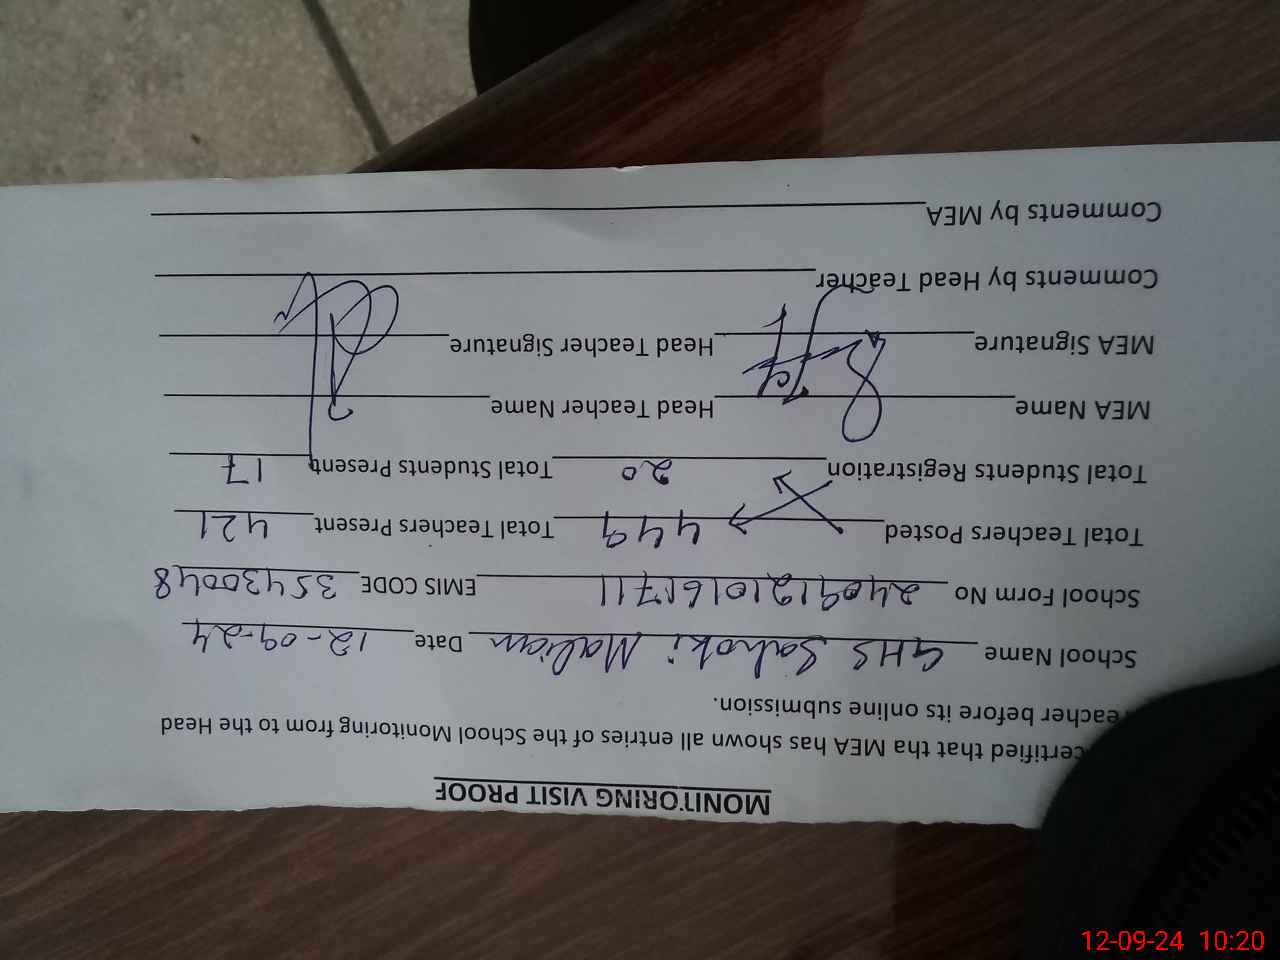 MONITORING VISIT PROOF
certified that tha MEA has shown all entries of the School Monitoring from to the Head
eacher before its online submission.
School Name GHS Sahoki Malian Date 12-09-24
School Form No 2409121016 1711 EMIS CODE 35430048
Total Teachers Posted 449 Total Teachers Present 421
Total Students Registration 20 Total Students Present 17
MEA Name Head Teacher Name
MEA Signature Head Teacher Signature
Comments by Head Teacher
Comments by MEA
12-09-24 10:20